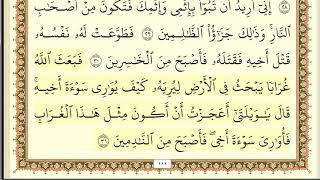 إِنِّىٓ أُرِيدُ أَن تَبُوٓأَ بِإِثْمِى وَإِثْمِكَ فَتَكُونَ مِنْ أَصْحَٰبِ
ٱلنَّارِ ۚ وَذَٰلِكَ جَزَٰٓؤُا۟ ٱلظَّٰلِمِينَ ٢٩ فَطَوَّعَتْ لَهُۥ نَفْسُهُۥ
قَتْلَ أَخِيهِ فَقَتَلَهُۥ فَأَصْبَحَ مِنَ ٱلْخَٰسِرِينَ ٣٠ فَبَعَثَ ٱللَّهُ
غُرَابًا يَبْحَثُ فِى ٱلْأَرْضِ لِيُرِيَهُۥ كَيْفَ يُوَٰرِى سَوْءَةَ أَخِيهِ ۚ
قَالَ يَٰوَيْلَتَىٰٓ أَعَجَزْتُ أَنْ أَكُونَ مِثْلَ هَٰذَا ٱلْغُرَابِ
فَأُوَٰرِىَ سَوْءَةَ أَخِى ۖ فَأَصْبَحَ مِنَ ٱلنَّٰدِمِينَ ٣١